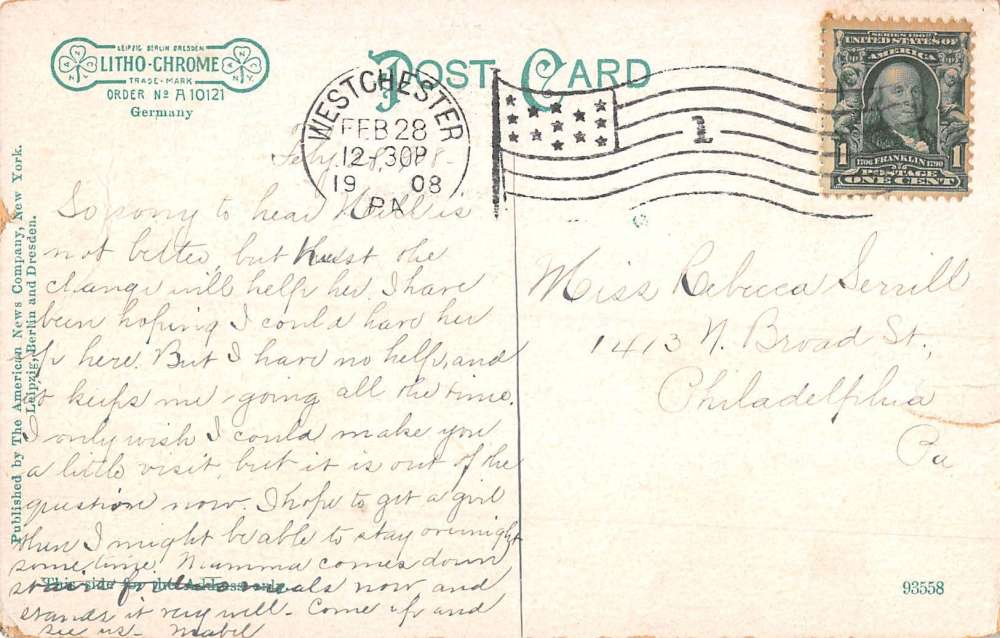 LEIPZIG BERLIN DRESDEN
LITHO-CHROME
TRADE-MARK
ORDER No A 10121
Germany
POST CARD
WESTCHESTER
FEB 28
12-30P
1908
PA
1
SERIES 1902
UNITED STATES OF
AMERICA
1 1706 FRANKLIN 1790 1
POSTAGE
ONE CENT
Published by The American News Company, New York.
Leipzig, Berlin and Dresden.
So sorry to hear Nell is
not better, but trust the
change will help her. I have
been hoping I could have her
up here. But I have no help, and
it keeps me going all the time.
I only wish I could make you
a little visit but it is out of the
question now. I hope to get a girl
then I might be able to stay overnight
some time. Mamma comes down
stairs for meals now and
This side for the Address only
stands it very well - Come up and
see us - Mabel
Miss Rebecca Serrill
1413 N. Broad St.,
Philadelphia
Pa
93558